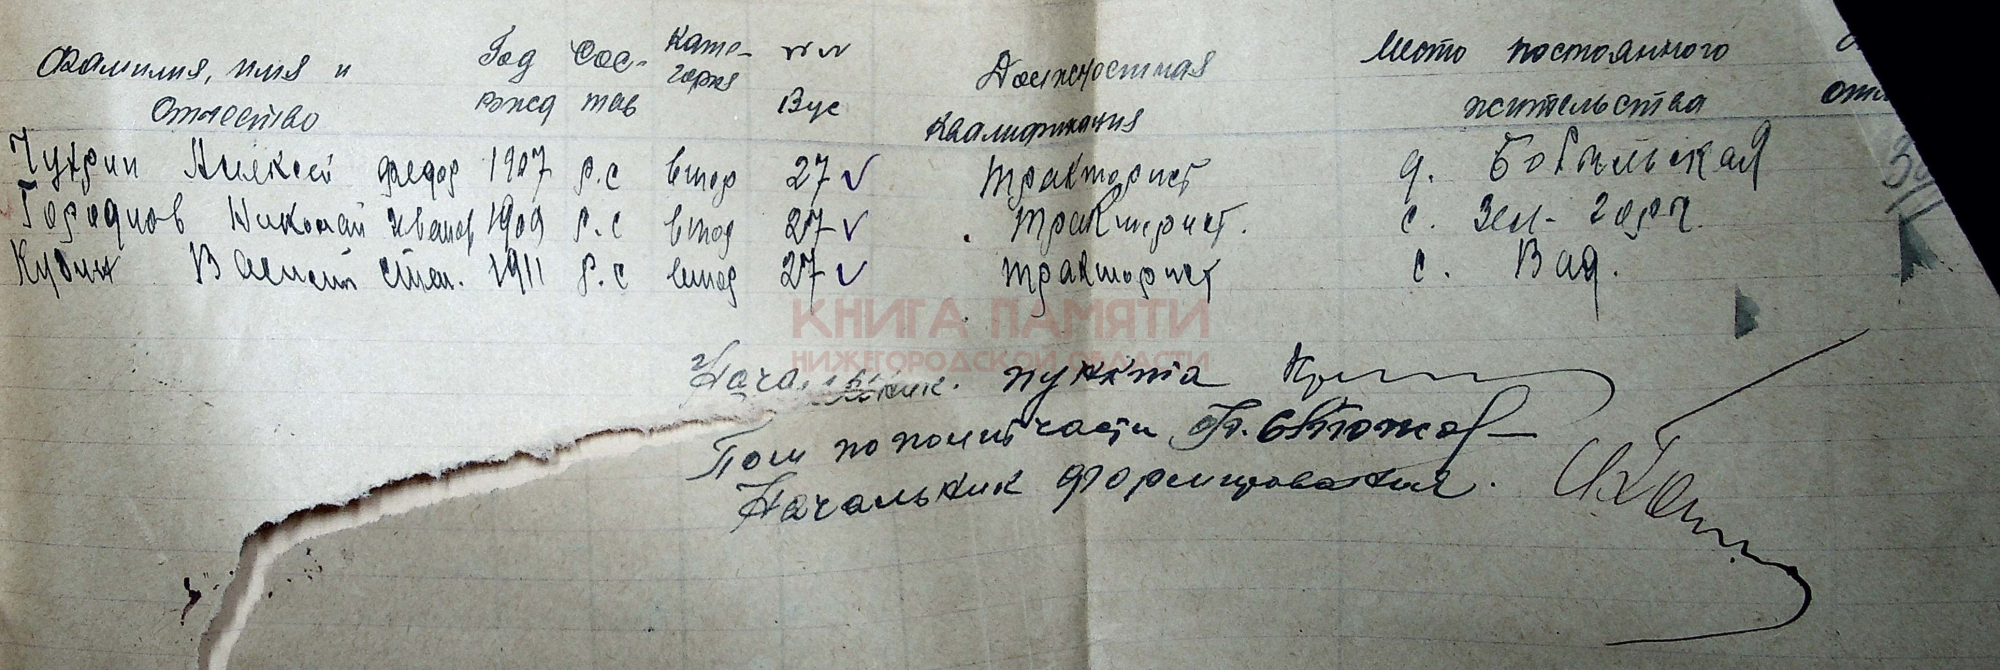 Фамилия, имя и Год Сос- Кате- №№ Должностная Место постоянного
отчество рожд тав гория Вус квалификация жительства
Чухрин Алексей федор 1907 р.с втор 27 тракторист д. Бобыльская
Городнов Николай Иванов 1909 р.с втор 27 тракторист. с. Зел- Гора.
Кубин Василий Степ. 1911 р.с втор 27 тракторист с. Вад.
КНИГА ПАМЯТИ
НИЖЕГОРОДСКОЙ ОБЛАСТИ
Начальник. пункта
Пом по полит части
Начальник формирования.